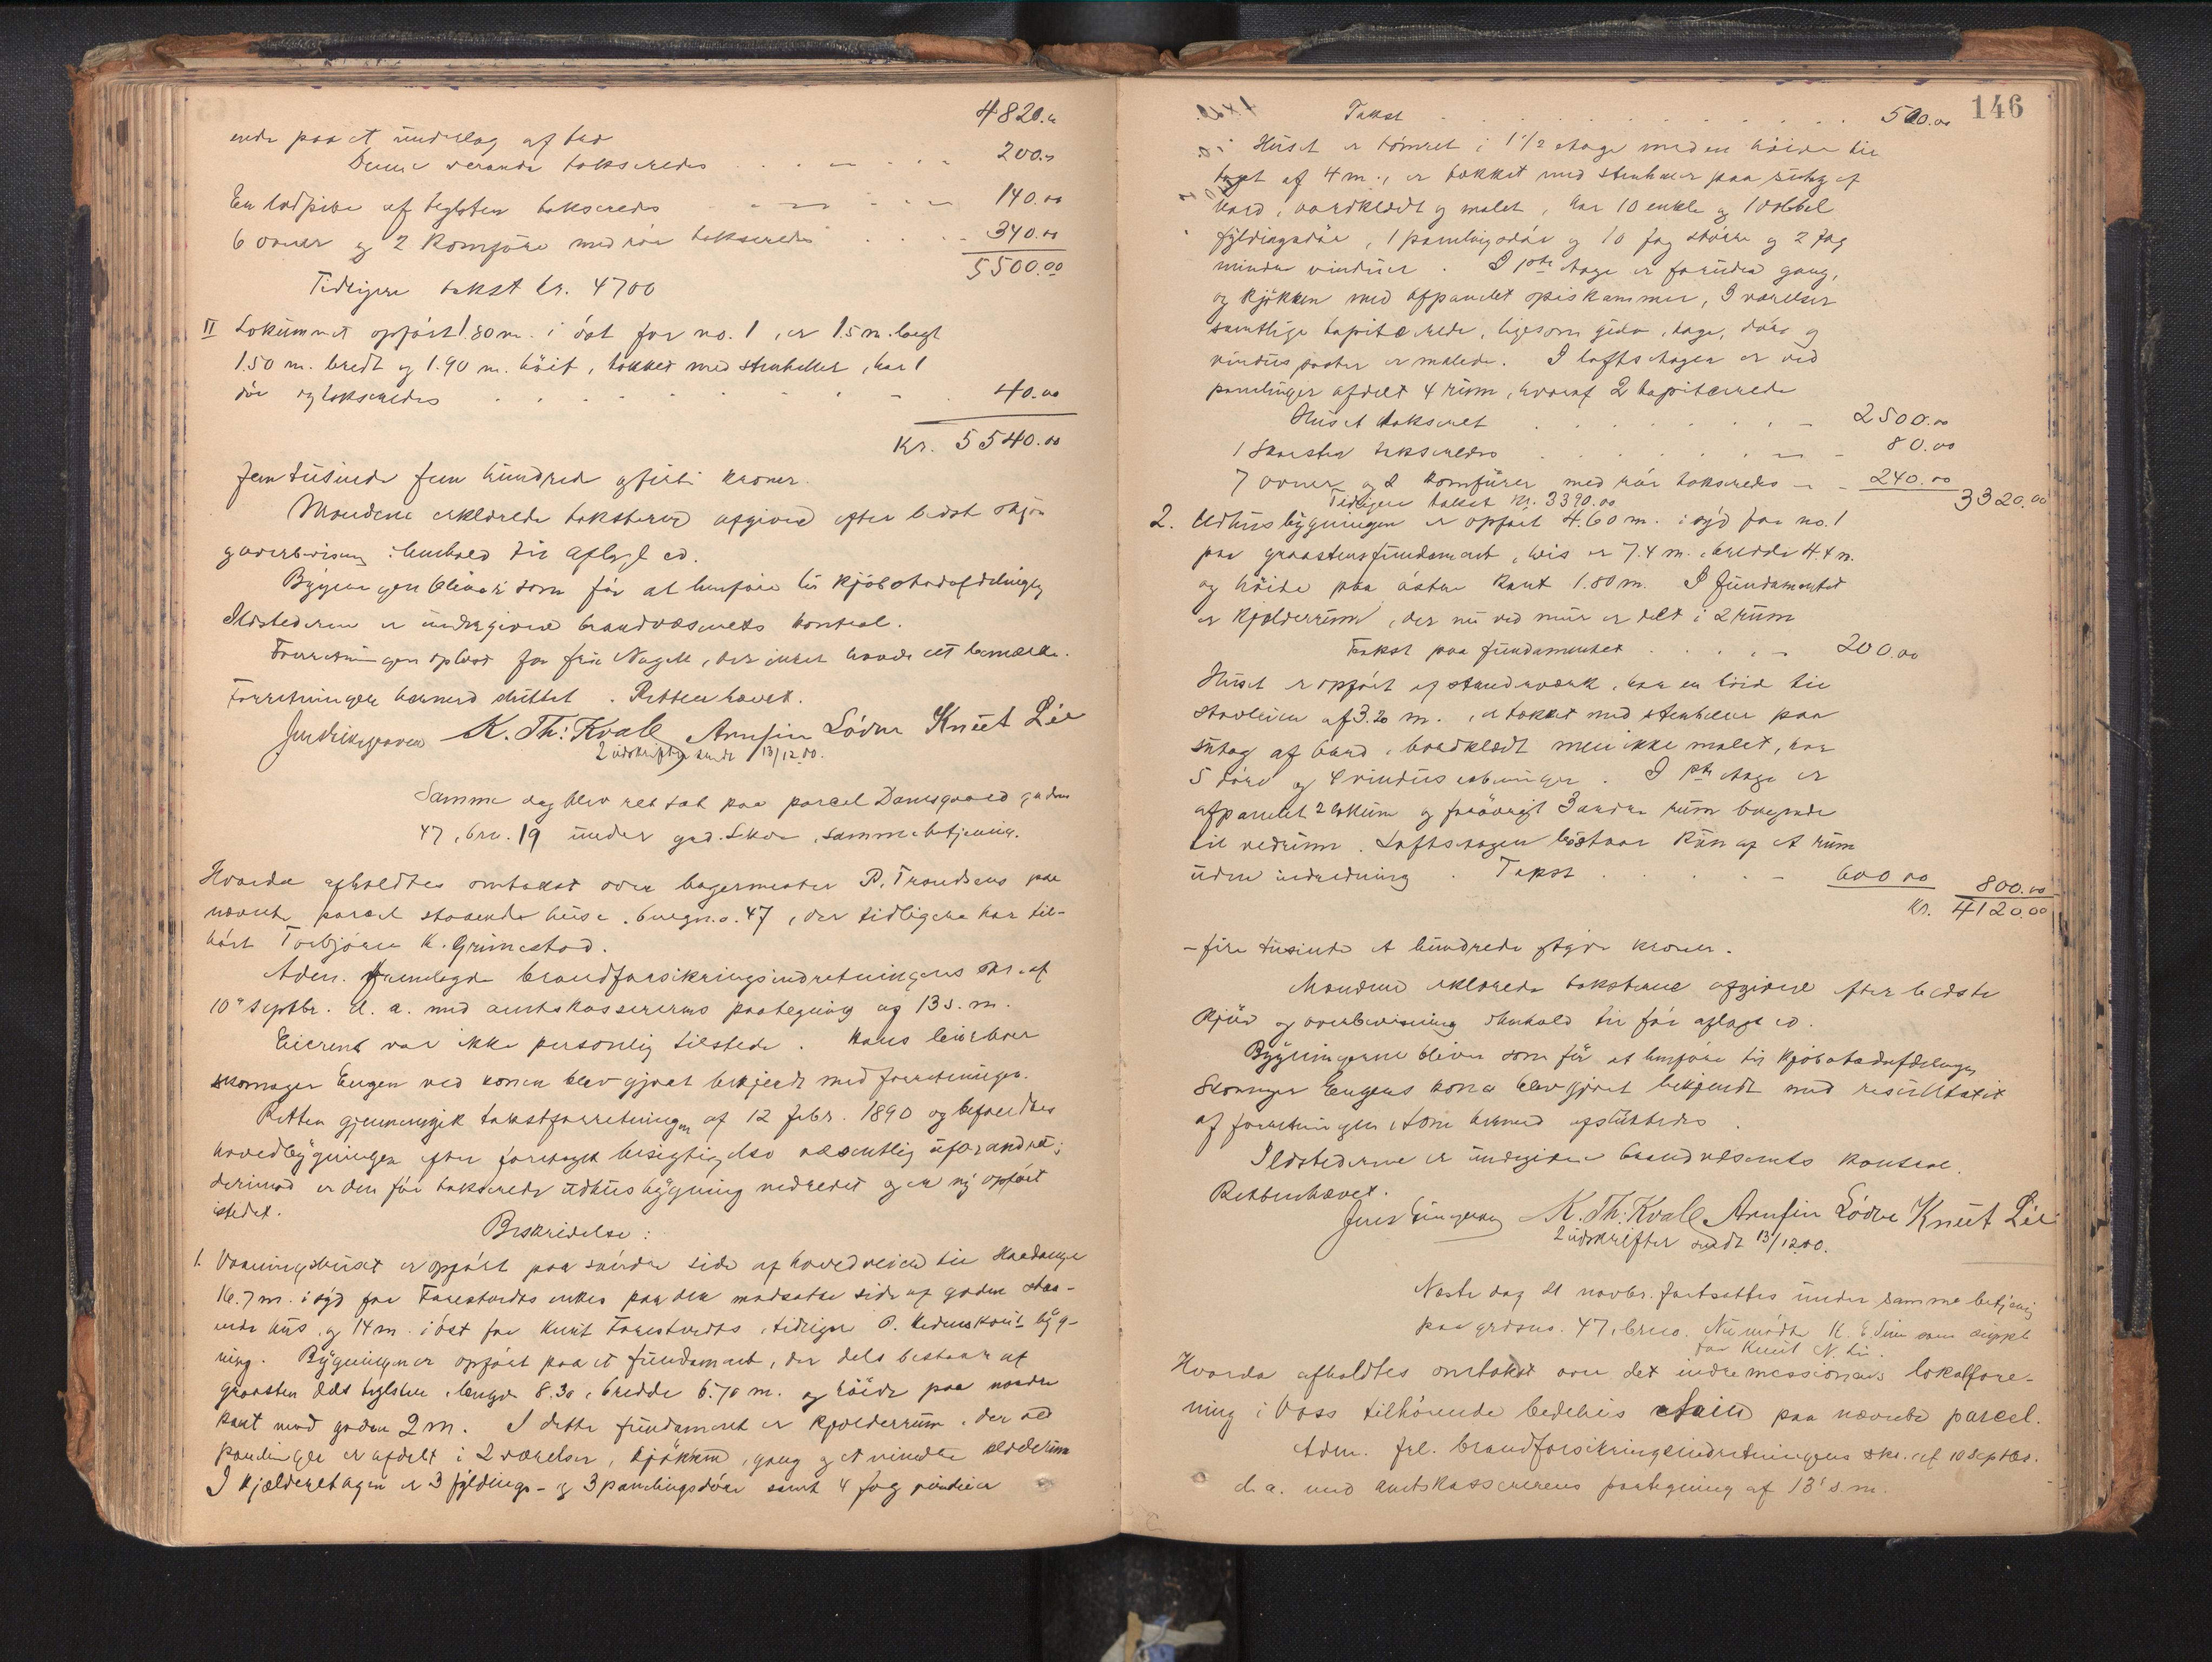 4820.00
ende paa et underlag af bord
Denne veranda takseredes 200.00
En ludpibe af teglsten takseredes 140.00
6 ovner og 2 Komfüre med rör takseredes 340.00
5500.00
Tidligere takst kr. 4700
II Lokummet opfört 1.80 m. i öst for no. 1, er 1.5 m. langt
1.50 m. bredt og 1.90 m. höit, tækket med stenheller, har 1
dör og takseredes 40.00
Kr. 5540.00
fem tusinde fem hundrede og firti kroner.
Mændene erklærede taksterne afgivne efter bedste skjön
og overbevisning i henhold til aflagt ed.
Bygningen bliver som för at henföre til kjöbstadafdelingen
Ildstederne er undergivne brandvæsenets kontrol.
Forretningen oplæst for frue Nagell, der intet havde at bemærke.
Forretningen hermed sluttet. Retten hævet.
K. Th: Kvale Arnfin Lödve Knut Lie
2 udskrifter sendt 13/12.00.
Samme dag blev ret sat paa parcel Damsgaard gadno
47, brn. 19 under gad. Lekve, samme betjening.
Hvorda afholdtes omtakst over bagermester P. Trondsens paa
nævnte parcel staaende huse. bragn.o. 47, der tidligere har til-
hört Torbjörn K. Grimestad.
Adm. fremlagde brandforsikringsindretningens skr. af
10de septbr. d. a. med amtskassererens paategning og 13 s. m.
Eieren var ikke personlig tilstede. Hans leieboer
skomager Eugen ved konen blev gjort bekjendt med forretningen.
Retten gjennemgik takstforretningen af 12 febr. 1890 og befandtes
hovedbygningen efter foretaget besigtigelse væsentlig uforandret;
derimod er den för takserede udhusbygning nedrevet og en ny opfört
istedet.
Beskrivelse:
1. Vaaningshuset er opfört paa söndre side af hovedveien til Hardanger
16.7 m. i syd for Farestveits enkes paa den modsatte side af gaden staa-
ende hus og 14 m. i öst for Knut Farestveits, tidligere O. byg-
ning. Bygningen er opfört paa et fundament, der dels bestaar af
graasten dels teglsten, længde 8.30, bredde 6.70 m. og höide paa nordre
kant mod gaden 2 m. I dette fundament er kjælderrum, der ved
panelinger er afdelt i 2 værelser, kjökken, gang og et mindre
I kjælderetagen er 3 fyldings- og 3 panelingsdöre samt 4 fag vinduer
146
Takst 500.00
Huset er tömret i 1 1/2 etage med en höide til
taget af 4 m., er tækket med stenheller paa sutag af
bord, bordklædt og malet, har 10 enkle og 1 dobbel
fyldingsdör, 1 panelingsdör og 10 fag större og 2 fag
mindre vinduer. I 1ste etage er foruden gang,
og kjökken med afpanelet spiskammer, 3 værelser
samtlige tapitserede, ligesom gulv, tage, döre og
vinduposter er malede. I loftsetagen er ved
panelinger afdelt 4 rum, hvoraf 2 tapitserede
Huset takseret 2500.00
1 skorsten takseredes 80.00
7 ovner og 2 komfürer med rör takseredes 240.00
3320.00
Tidligere takst kr. 3390.00
2. Udhusbygningen er opfört 4.60 m. i syd for no. 1
paa graastensfundament, hvis er 7.4 m. bredde 4.4 m.
og höide paa östre kant 1.80 m. I fundamentet
er kjælderrum, der nu ved mur er delt i 2 rum
Takst paa fundamentet 200.00
Huset er opfört af stenderværk, har en höide til
stavleien af 3.20 m., er tækket med stenheller paa
sutag af bord, bordklædt men ikke malet, har
5 döre og 4 vindusaabninger. I 1ste etage er
afpanelet 2 lokum og forövrigt 3 andre rum bruges
til vedrum. Loftsetagen bestaar kun af et rum
uden indredning. Takst 600.00 800.00
Kr. 4120.00
- fire tusinde et hundrede og tyve kroner.
Mændene erklærede taksterne afgivne efter bedste
skjön og overbevisning i henhold til för aflagt ed.
Bygningerne bliver som för at henföre til kjöbstadafdelingen
Skomager Eugens kone blev gjort bekjendt med resultatet
af forretningen, som hermed afsluttedes.
Ildstederne er undergivne brandvæsenets kontrol.
Retten hævet.
K. Th: Kvale Arnfin Lödve Knut Lie
2 udskrifter sendt 13/12.00.
Næste dag 21 novbr. fortsattes under samme betjening
paa grdsno. 47, brno. Nu mödte K. E. som suppl
for Knut N. Lie.
Hvorda afholdtes omtakst over det indremissionens lokalfore-
ning i Voss tilhörende bedehus paa nævnte parcel.
Adm. frl. brandforsikringsindretningens skr. af 10 septbr.
d. a. med amtskassererens paategning af 13 s. m.